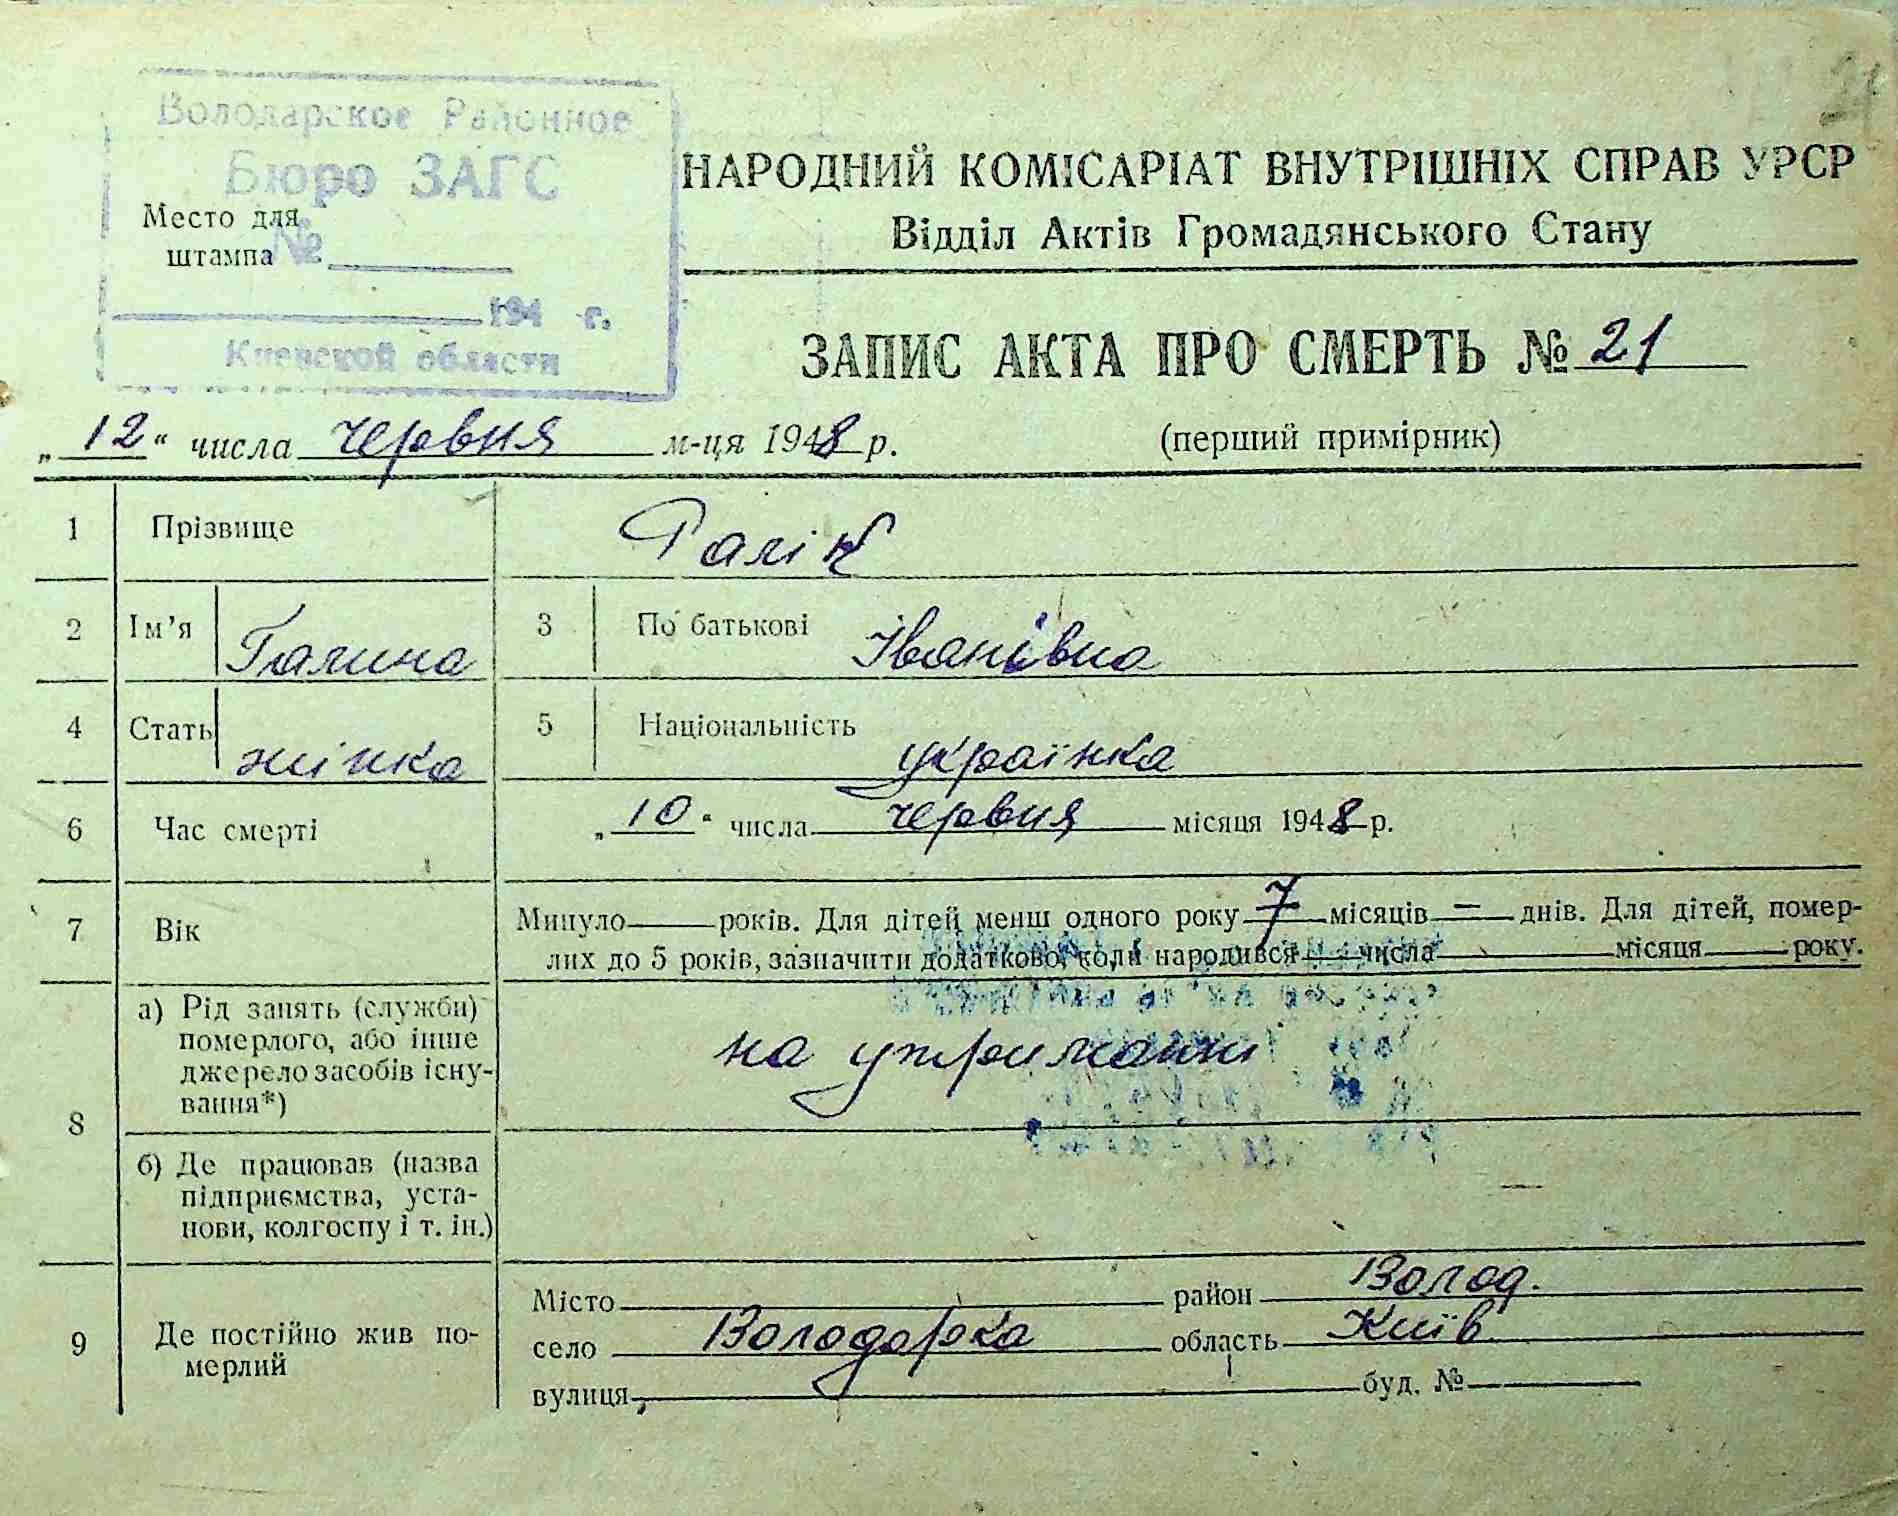 21
Володарское Районное
Бюро ЗАГС
Место для
штампа
№
194 г.
Киевской области
НАРОДНИЙ КОМІСАРІАТ ВНУТРІШНІХ СПРАВ УРСР
Відділ Актів Громадянського Стану
ЗАПИС АКТА ПРО СМЕРТЬ № 21
„12“ числа червня м-ця 1948 р.
(перший примірник)
1 Прізвище Галік
2 Ім’я Галина 3 По батькові Іванівна
4 Стать жінка 5 Національність українка
6 Час смерті „10“ числа червня місяця 1948 р.
7 Вік Минуло — років. Для дітей менш одного року 7 місяців — днів. Для дітей, помер-
лих до 5 років, зазначити додатково, коли народився „ “ числа місяця року.
8 а) Рід занять (служби)
померлого, або інше
джерело засобів існу-
вання*)
на утриманні
б) Де працював (назва
підприємства, уста-
нови, колгоспу і т. ін.)
—
9 Де постійно жив по-
мерлий
Місто район Волод.
село Володарка область Київ
вулиця буд. №